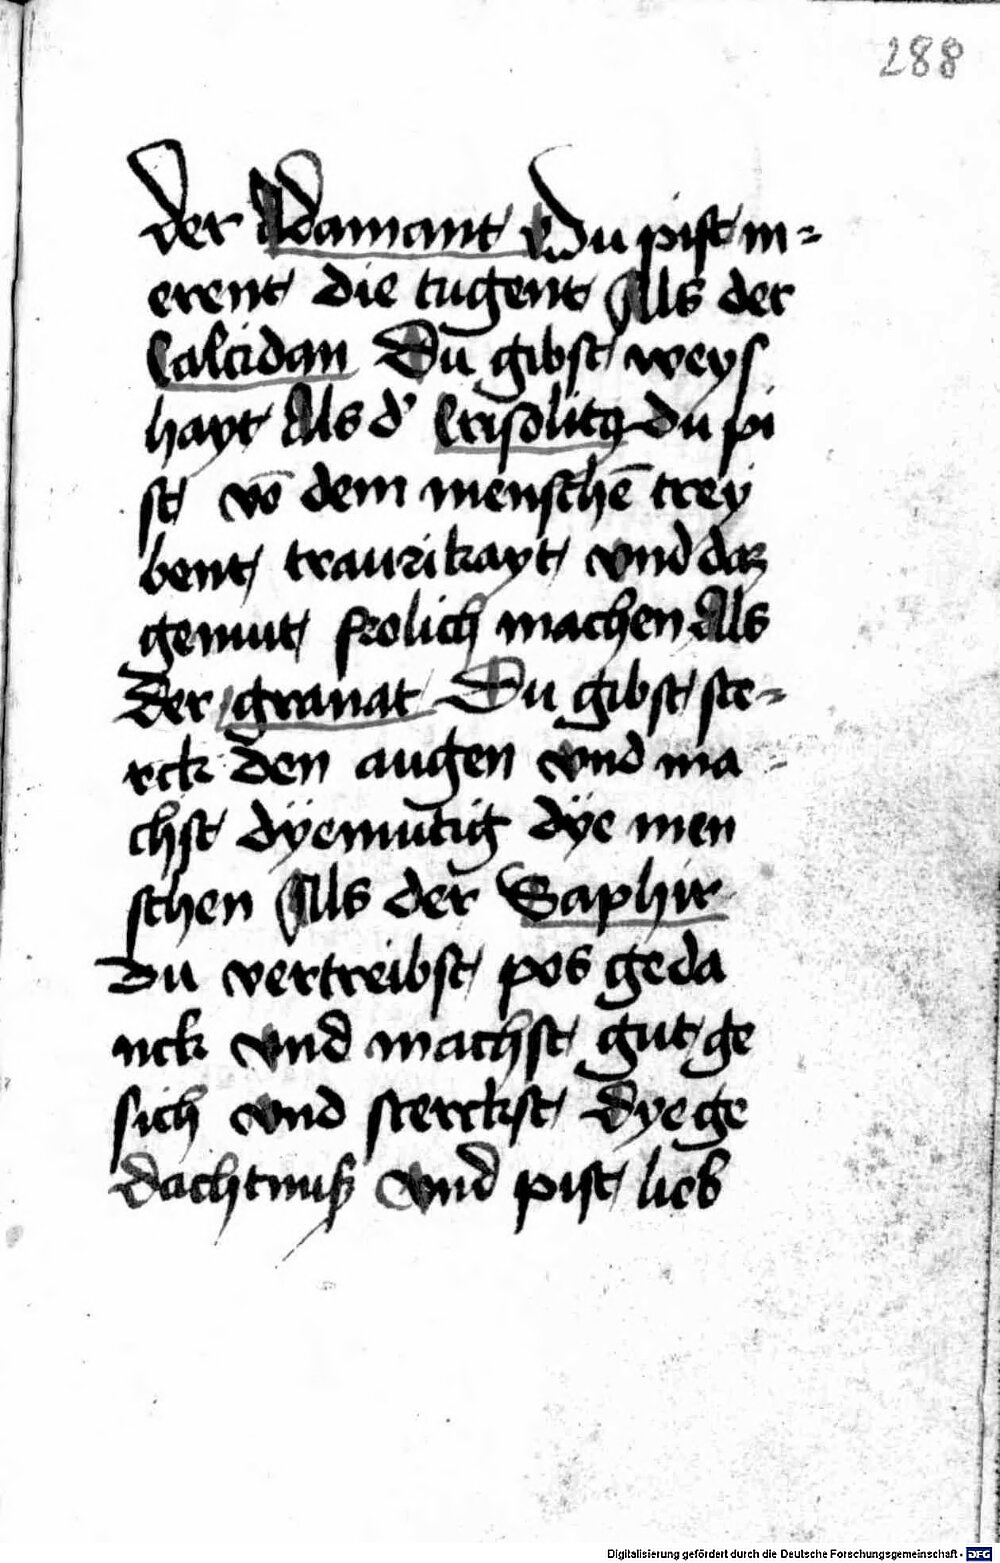 288
der Adamant Du pist m=
erent die tugent Als der
Calcidan Du gibst weys
hayt Als d' Crisolitꝰ du pi
st vō dem menschē trey
bent traurikayt vnd daz
gemut frolich machen Als
der granat Du gibst ste=
rck den augen vnd ma
chst dÿemutig dÿe men
schen Als der Saphir
du vertreibst pos geda
nck vnd machst gut ge
sich vnd sterckst dye ge
dachtnuß Vnd pist lieb
Digitalisierung gefördert durch die Deutsche Forschungsgemeinschaft - DFG